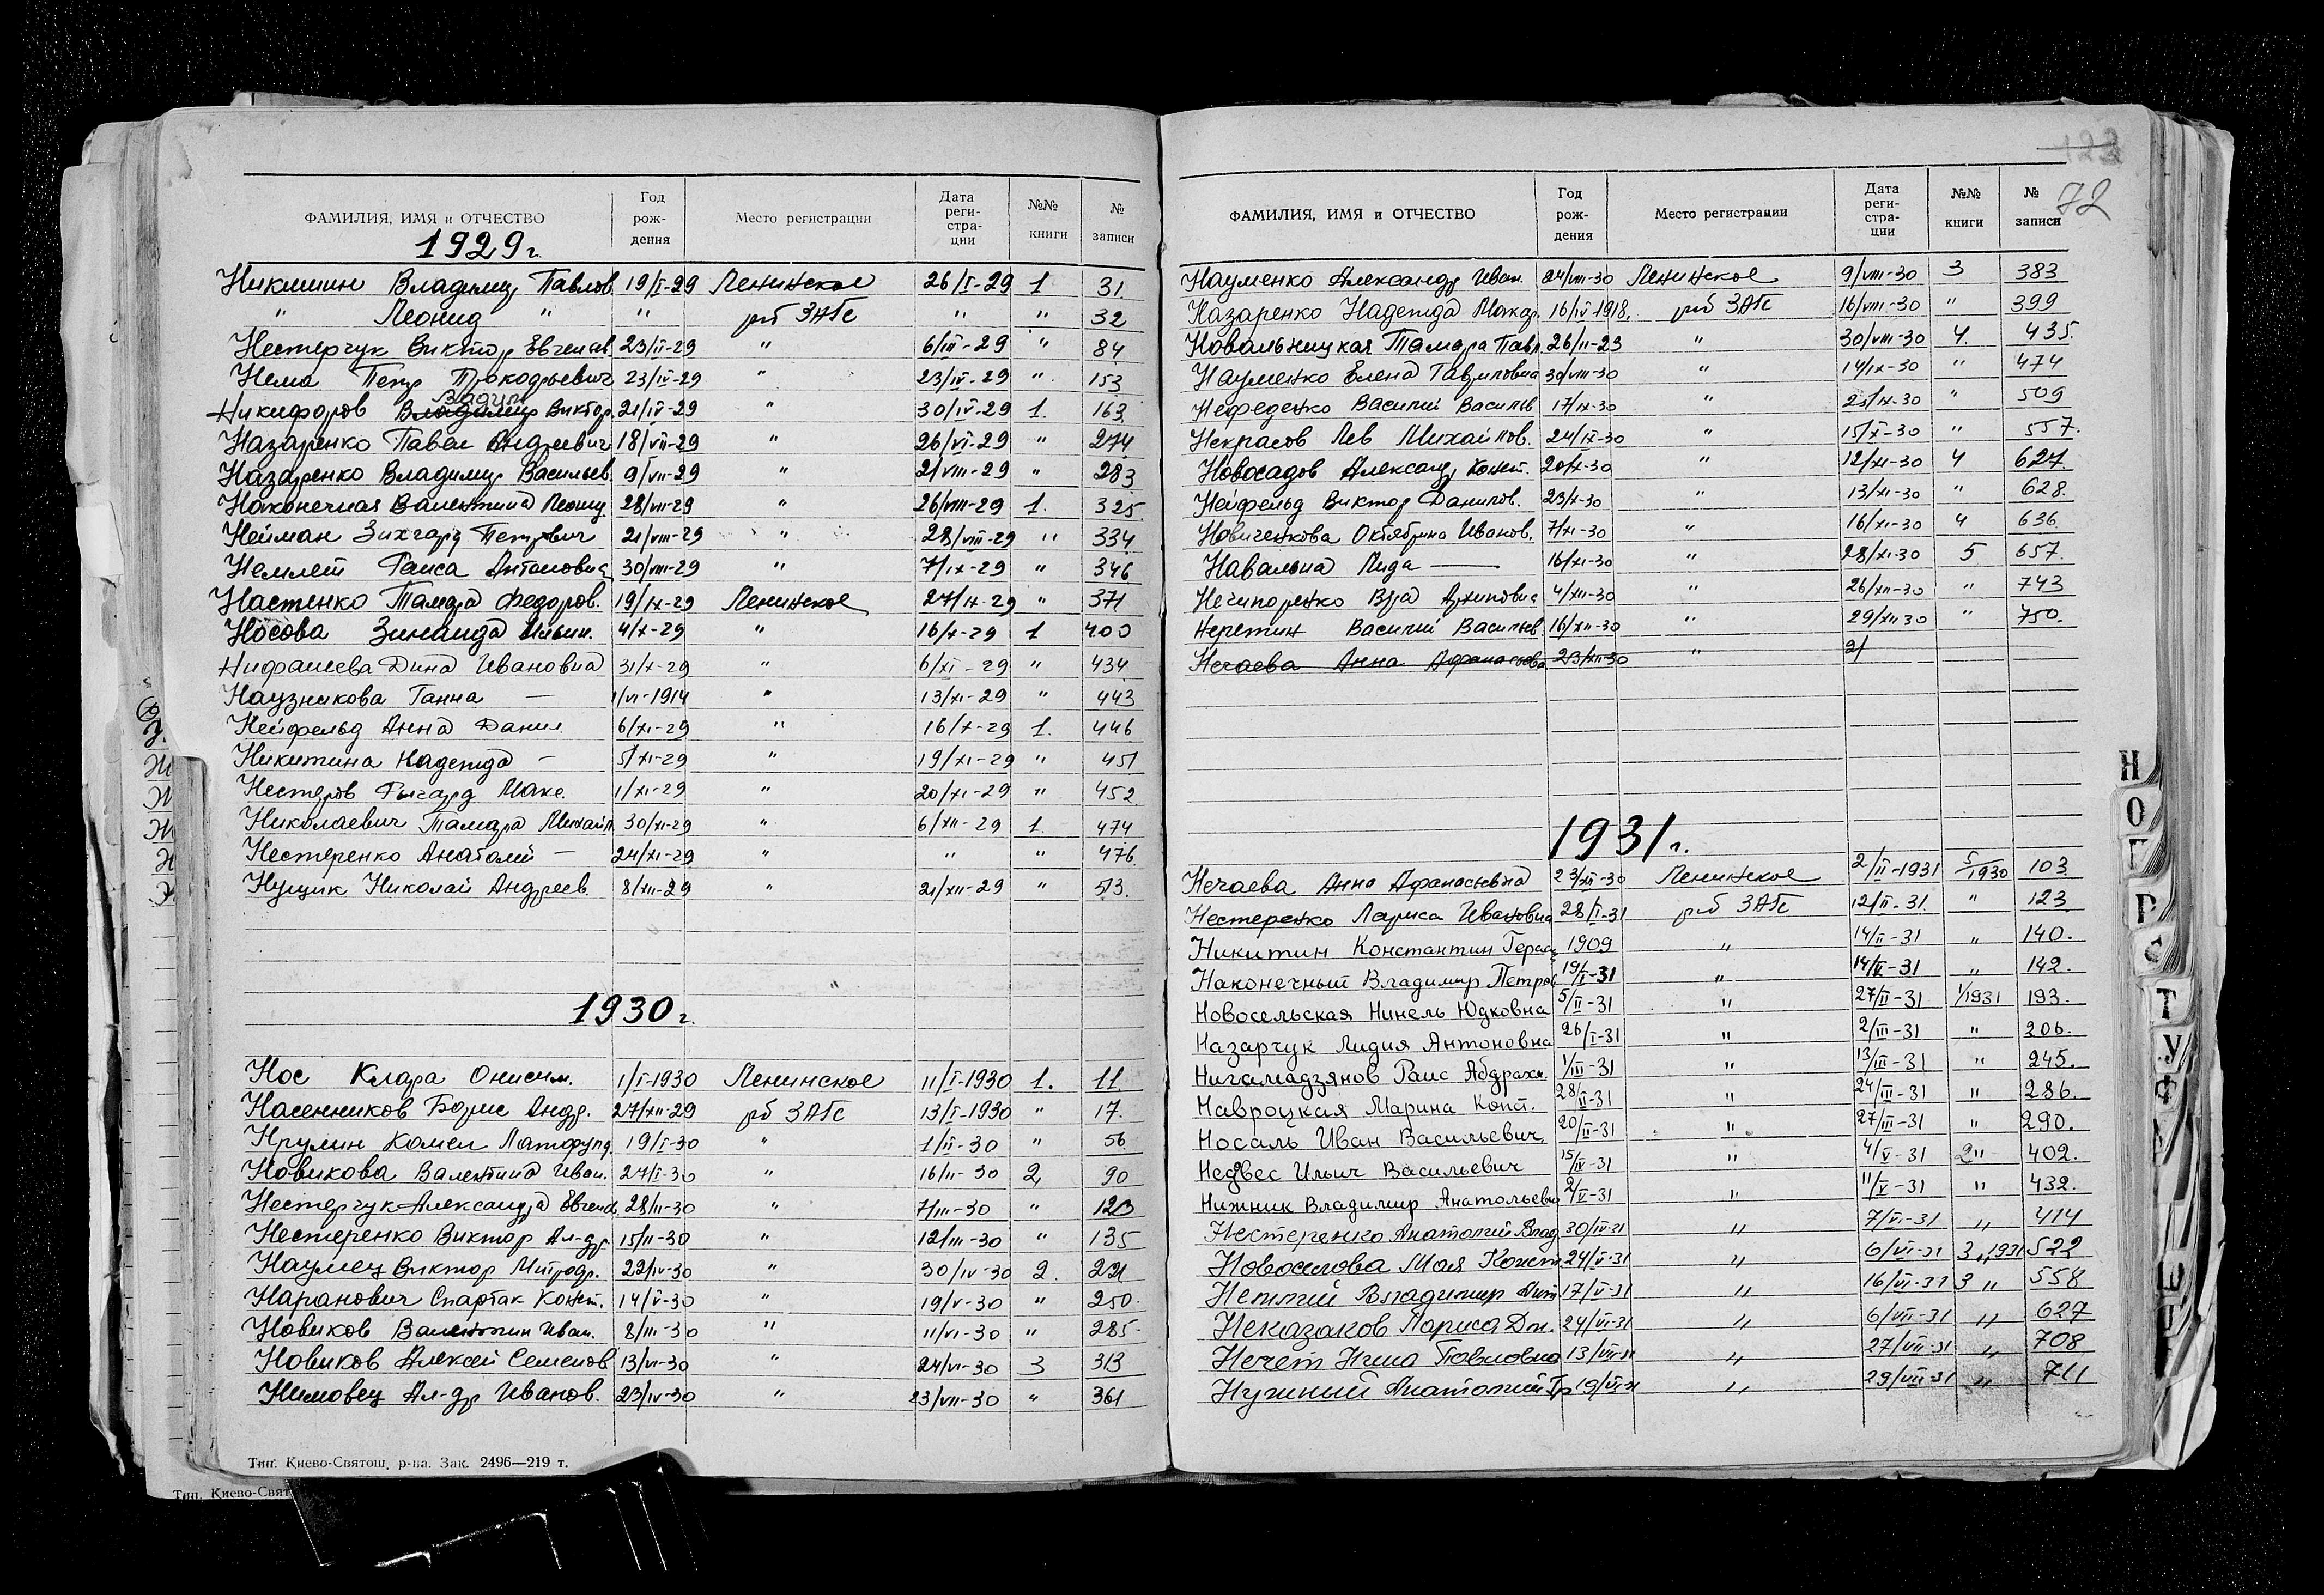 ФАМИЛИЯ, ИМЯ и ОТЧЕСТВО Год рождения Место регистрации Дата регистрации №№ книги № записи
1929 г.
Никишин Владимир Павлов. 19/I-29 Ленинское 26/I-29 1 31.
" Леонид " " рб ЗАГс " " 32
Нестерчук Виктор Евгенов. 23/II-29 " 6/III-29 " 84
Нема Петр Прокофьевич 23/IV-29 " 23/IV-29 " 153
Вадим
Никифоров Владимир Виктор. 21/IV-29 " 30/IV-29 1. 163.
Назаренко Павел Андреевич 18/VII-29 " 26/VI-29 " 274
Назаренко Владимир Васильев. 9/VII-29 " 2/VIII-29 " 283
Наконечная Валентина Леонид. 28/VII-29 " 26/VIII-29 1. 325.
Нейман Зихгард Петрович 21/VIII-29 " 28/VIII-29 " 334
Немлет Раиса Антоновна 30/VIII-29 " 7/IX-29 " 346
Настенко Тамара Федоров. 19/IX-29 Ленинское 27/IX-29 " 371
Носова Зинаида Ильин. 4/X-29 " 16/X-29 1 400
Нифашева Дина Ивановна 31/X-29 " 6/XI-29 " 434
Наузникова Ганна — 1/VI-1914 " 13/XI-29 " 443
Нейфельд Анна Данил. 6/XI-29 " 16/X-29 1. 446
Никитина Надежда — 5/XI-29 " 19/XI-29 " 451
Нестеров Рычард Макс. 1/XI-29 " 20/XI-29 " 452
Николаевич Тамара Михайл. 30/XI-29 " 6/XII-29 1. 474
Нестеренко Анатолий — 24/XI-29 " " " 476.
Нущик Николай Андреев. 8/XII-29 " 21/XII-29 " 513.
1930 г.
Нос Клара Онисим. 1/I-1930 Ленинское 11/I-1930 1. 11.
Насенников Борис Андр. 27/XII-29 рб ЗАГс 13/I-1930 " 17.
Нрулин Камел 19/I-30 " 1/II-30 " 56
Новикова Валентина Иван. 27/I-30 " 16/II-30 2. 90
Нестерчук Александра Евген. 28/II-30 " 7/III-30 " 120
Нестеренко Виктор Ал-др. 15/II-30 " 12/III-30 " 135
Наумец Виктор Митроф. 22/IV-30 " 30/IV-30 2. 221
Наранович Спартак Конст. 14/V-30 " 19/V-30 " 250.
Новиков Валентин Иван. 8/III-30 " 11/VI-30 " 285.
Новиков Алексей Семенов 13/VI-30 " 24/VI-30 3 313
Нимовец Ал-др Иванов. 23/IV-30 " 23/VII-30 " 361
Тип. Киево-Святош. р-на. Зак. 2496—219 т.
Тип. Киево-Свят
122
72
ФАМИЛИЯ, ИМЯ и ОТЧЕСТВО Год рождения Место регистрации Дата регистрации №№ книги № записи
Науменко Александр Иван. 24/VIII-30 Ленинское 9/VIII-30 3 383
Назаренко Надежда Макар. 16/IV-1918. рб ЗАГс 16/VIII-30 " 399
Новальницкая Тамара Павл. 26/II-23 " 30/VIII-30 4. 435.
Науменко Елена Гавриловна 30/VIII-30 " 14/IX-30 " 474
Нефеденко Василий Васильв 17/IX-30 " 25/IX-30 " 509
Некрасов Лев Михайлов. 24/IX-30 " 15/X-30 " 557.
Новосадов Александр Конст. 20/X-30 " 12/XI-30 4 627.
Нейфельд Виктор Данилов. 23/X-30 " 13/XI-30 " 628.
Новиченкова Октябрина Иванов. 7/XI-30 " 16/XI-30 4 636.
Навальна Лида — 16/XI-30 " 28/XI-30 5 657.
Нечипоренко Вера Архиповна 4/XII-30 " 26/XII-30 " 743
Неретин Василий Васильев. 16/XII-30 " 29/XII 30 " 750.
Нечаева Анна Афанасьевна 23/XII-30 " 2/
1931 г.
Нечаева Анна Афанасьевна 23/XII-30 Ленинское 2/II-1931 5/1930 103
Нестеренко Лариса Ивановна 28/I-31 рб ЗАГс 12/II-31. " 123
Никитин Константин Герас. 1909 " 14/II-31 " 140.
Наконечный Владимир Петров 19/I-31 " 14/II-31 " 142.
Новосельская Нинель Юдковна 5/II-31 " 27/II-31 1/1931 193.
Назарчук Лидия Антоновна 26/I-31 " 2/III-31 " 206.
Нигамадзянов Раис Абдрахм. 1/III-31 " 13/III-31 " 245.
Навроцкая Марина Конст. 28/II-31 " 24/III-31 " 286.
Носаль Иван Васильевич. 20/II-31 " 27/III-31 " 290.
Недвес Ильич Васильевич 15/IV-31 " 4/V-31 2" 402.
Нижник Владимир Анатольевич 2/V-31 " 11/V-31 " 432.
Нестеренко Анатолий Влад. 30/IV-31 " 7/VI-31 " 414
Новоселова Мая Конст. 24/V-31 " 6/VI-31 3 "1931 522
Неплий Владимир Ант. 17/V-31 " 16/VI-31 3 " 558
Неказаков Лариса Дм. 24/VI-31 " 6/VII-31 " 627
Нечет Нина Павловна 13/VII-31 " 27/VII-31 " 708
Нужный Анатолий Гр. 19/VI-31 " 29/VII-31 " 711
Н
О
П
Р
С
Т
У
Ф
Ш